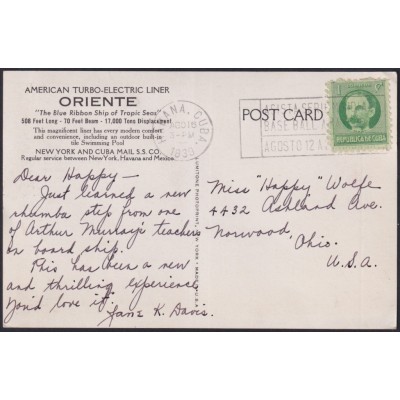 AMERICAN TURBO-ELECTRIC LINER
ORIENTE
"The Blue Ribbon Ship of Tropic Seas"
508 Feet Long - 70 Foot Beam - 17,000 Tons Displacement
This magnificent liner has every modern comfort
and convenience, including an outdoor built-in
tile Swimming Pool
NEW YORK AND CUBA MAIL S.S. CO.
Regular service between New York, Havana and Mexico
Dear Happy—
Just learned a new
rhumba step from one
of Arthur Murray's teachers
on board ship.
This has been a new
and thrilling experience
You'd love it.
Jane K. Davis.
HAVANA, CUBA
-PM
1939
POST CARD
ASISTA SERIE
BASE BALL
AGOSTO 12 A
REPUBLICA DE CUBA
Miss "Happy" Wolfe
4432 Ashland Ave.
Norwood,
Ohio.
U.S.A.